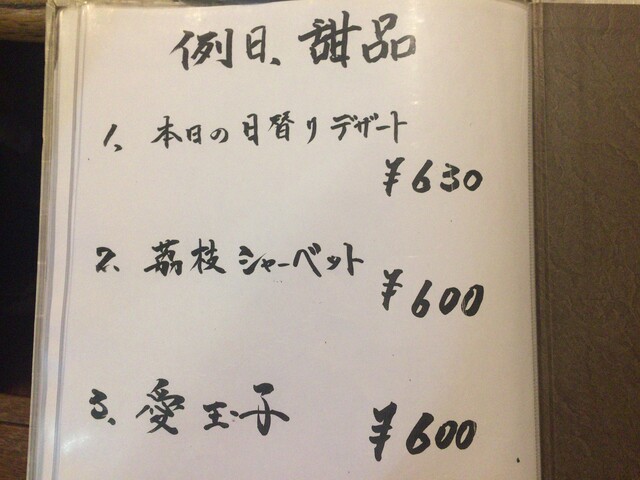 例日、甜品
1、本日の日替りデザート
¥630
2、荔枝シャーベット
¥600
3、愛玉子
¥600